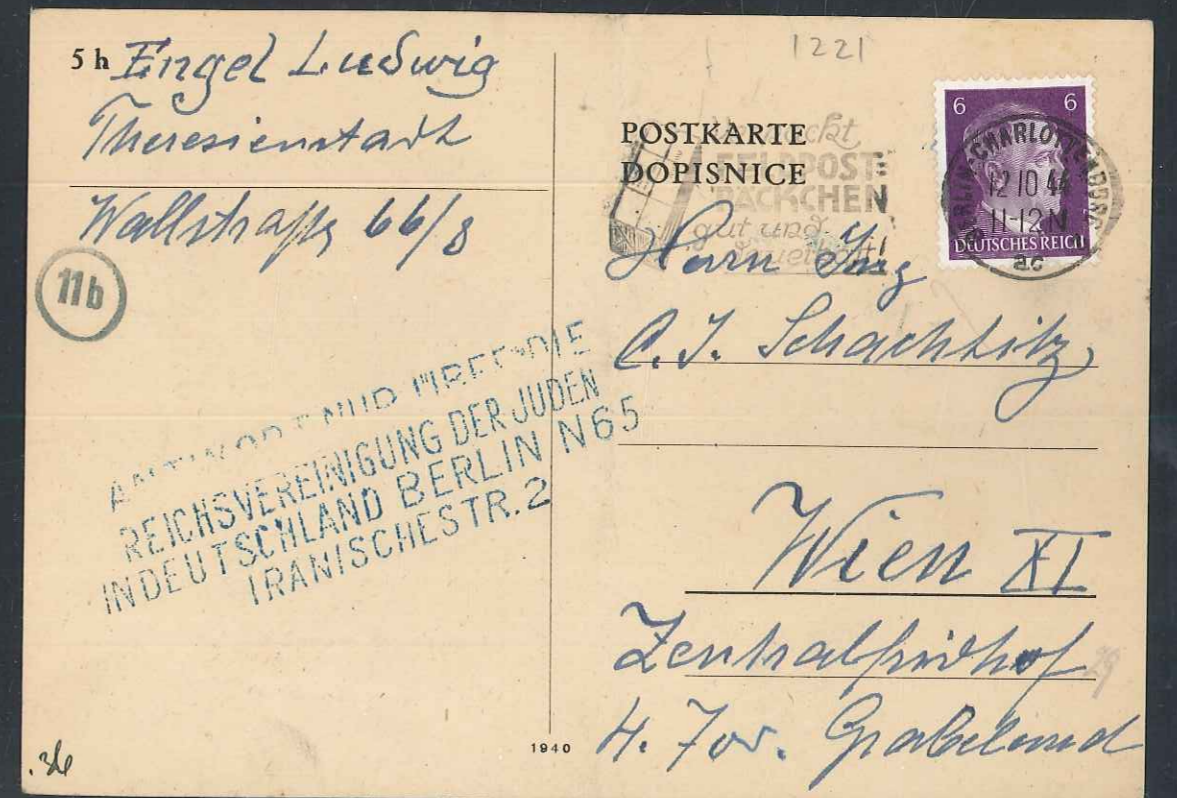 5 h Engel Ludwig
Theresienstadt
Wallstraße 66/8
11b
ANTWORT NUR ÜBER DIE
REICHSVEREINIGUNG DER JUDEN
IN DEUTSCHLAND BERLIN N65
IRANISCHESTR. 2
.36
1940
1221
POSTKARTE
DOPISNICE
FELDPOST=
PÄCKCHEN
gut und
6 6
DEUTSCHES REICH
BERLIN-CHARLOTTENBURG
12 10 44
11-12 N
ac
Herrn Ing
Wien XI
Zentralfriedhof
4. Tor. Grabeland
29